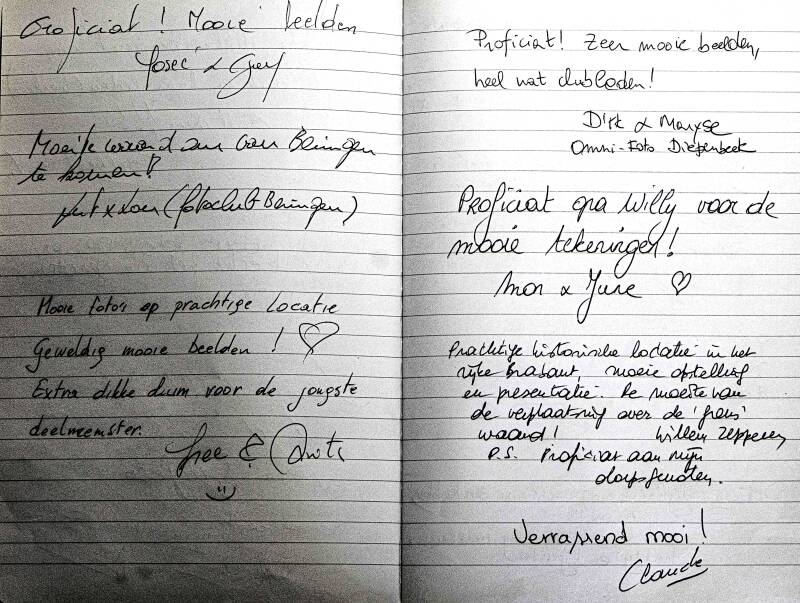 Proficiat! Mooie beelden
Moeite waard om van Beringen
te komen!
(fotoclub Beringen)
Mooie foto's op prachtige locatie
Geweldig mooie beelden!
Extra dikke duim voor de jongste
deelneemster.
Proficiat! Zeer mooie beelden,
heel wat clubleden!
Dirk & Maryse
Omni-Foto Diepenbeek
Proficiat opa Willy voor de
mooie tekeningen!
& June
Prachtige historische locatie in het
rijke Brabant, mooie opstelling
en presentatie. De moeite van
de verplaatsing over de 'grens'
waard! Willem Zeppers
P.S. Proficiat aan mijn
dorpsgenoten.
Verrassend mooi!
Claude